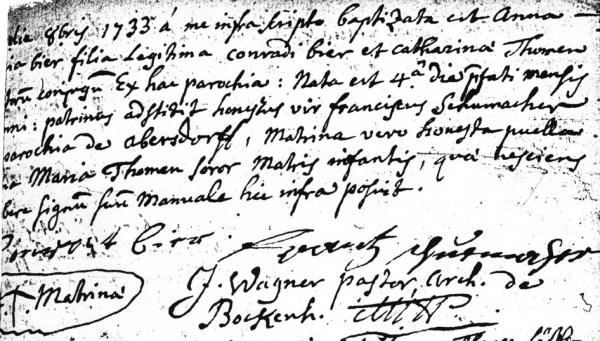 die 8bris 1733 á me infrascripto baptizata est Anna
bier filia legitima conradi bier et catharina Thomen
conjugũ Ex hac parochia : Nata est 4.ª die pfati mensis
: patrinus adstitit honestus vir franciscus Schumacher
parochia de abersdorff, Matrina vero honesta puella
Maria Thomen soror Matris infantis, quæ nesciens
signum suũ Manuale hic infra posuit.
bier
Matrina
J. Wagner pastor, Arch. de
Bockenh.